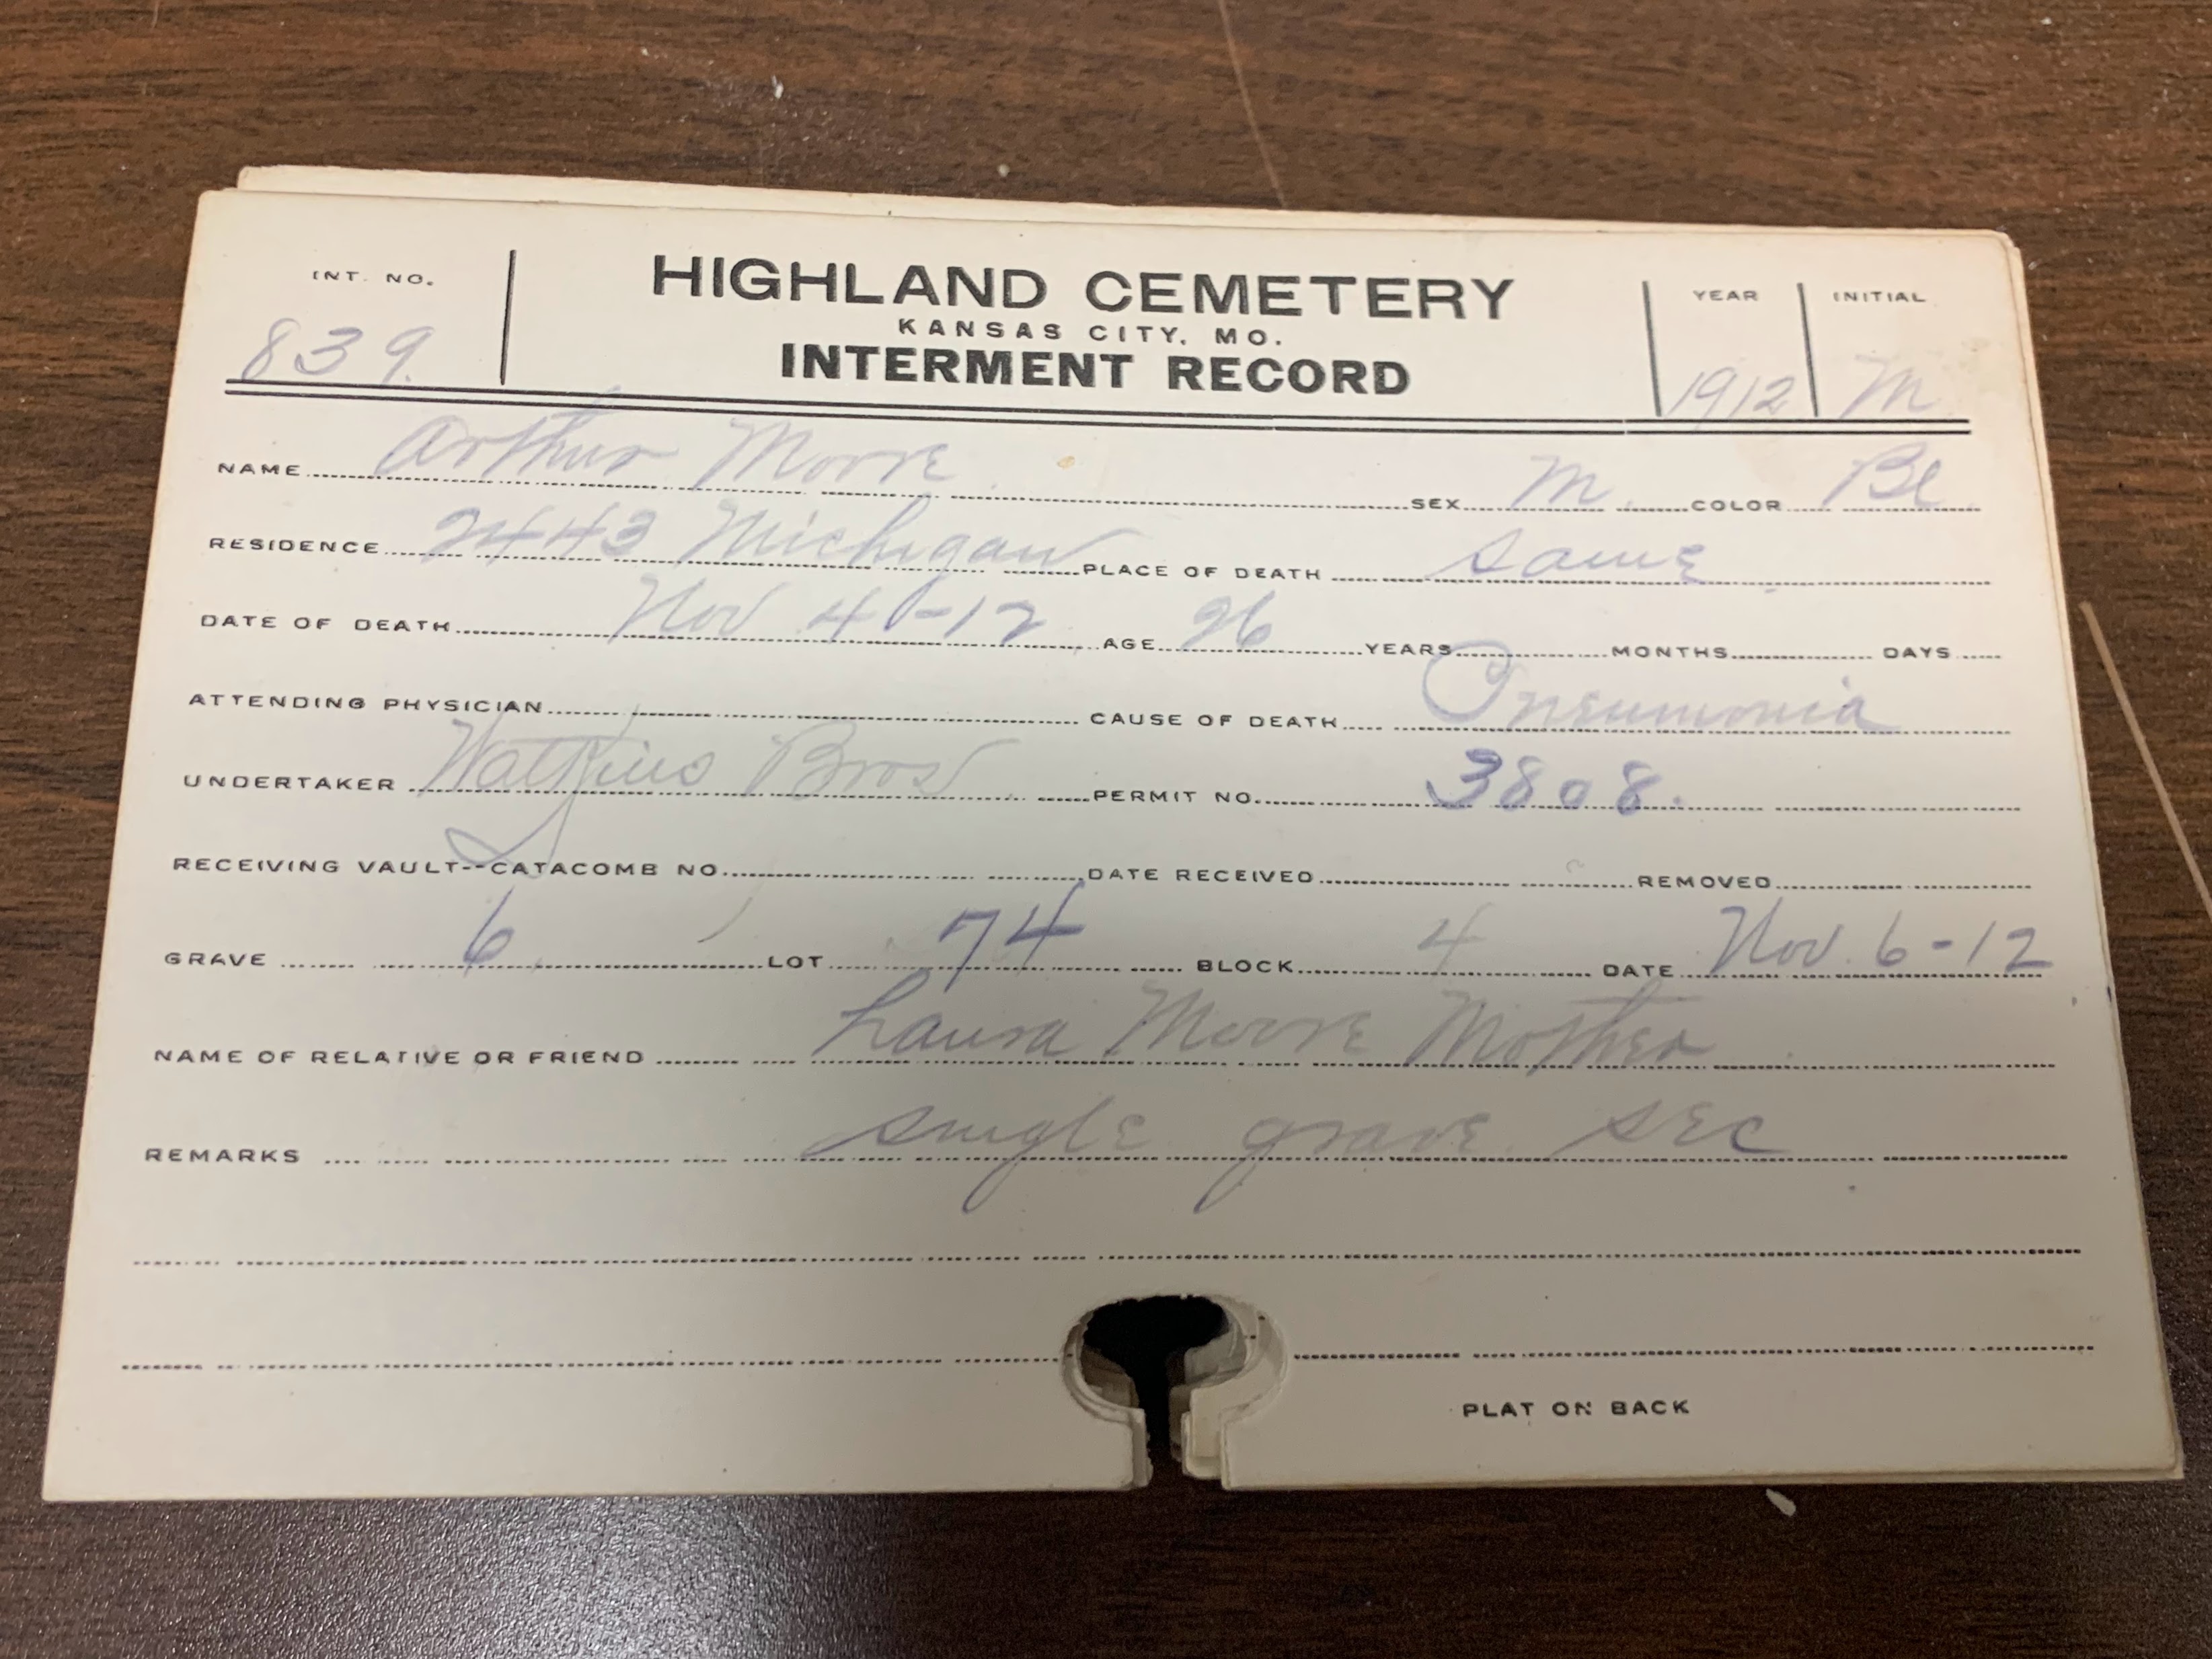 INT. NO. HIGHLAND CEMETERY YEAR INITIAL
KANSAS CITY, MO.
839. INTERMENT RECORD 1912 M
NAME Arthur Moore SEX M. COLOR Bl
RESIDENCE 2443 Michigan PLACE OF DEATH Same
DATE OF DEATH Nov 4-12 AGE 26 YEARS MONTHS DAYS
ATTENDING PHYSICIAN CAUSE OF DEATH Pneumonia
UNDERTAKER Watkins Bros PERMIT NO. 3808.
RECEIVING VAULT--CATACOMB NO. DATE RECEIVED REMOVED
GRAVE 6 LOT 74 BLOCK 4 DATE Nov. 6-12
NAME OF RELATIVE OR FRIEND Laura Moore Mother
REMARKS Single grave sec
PLAT ON BACK